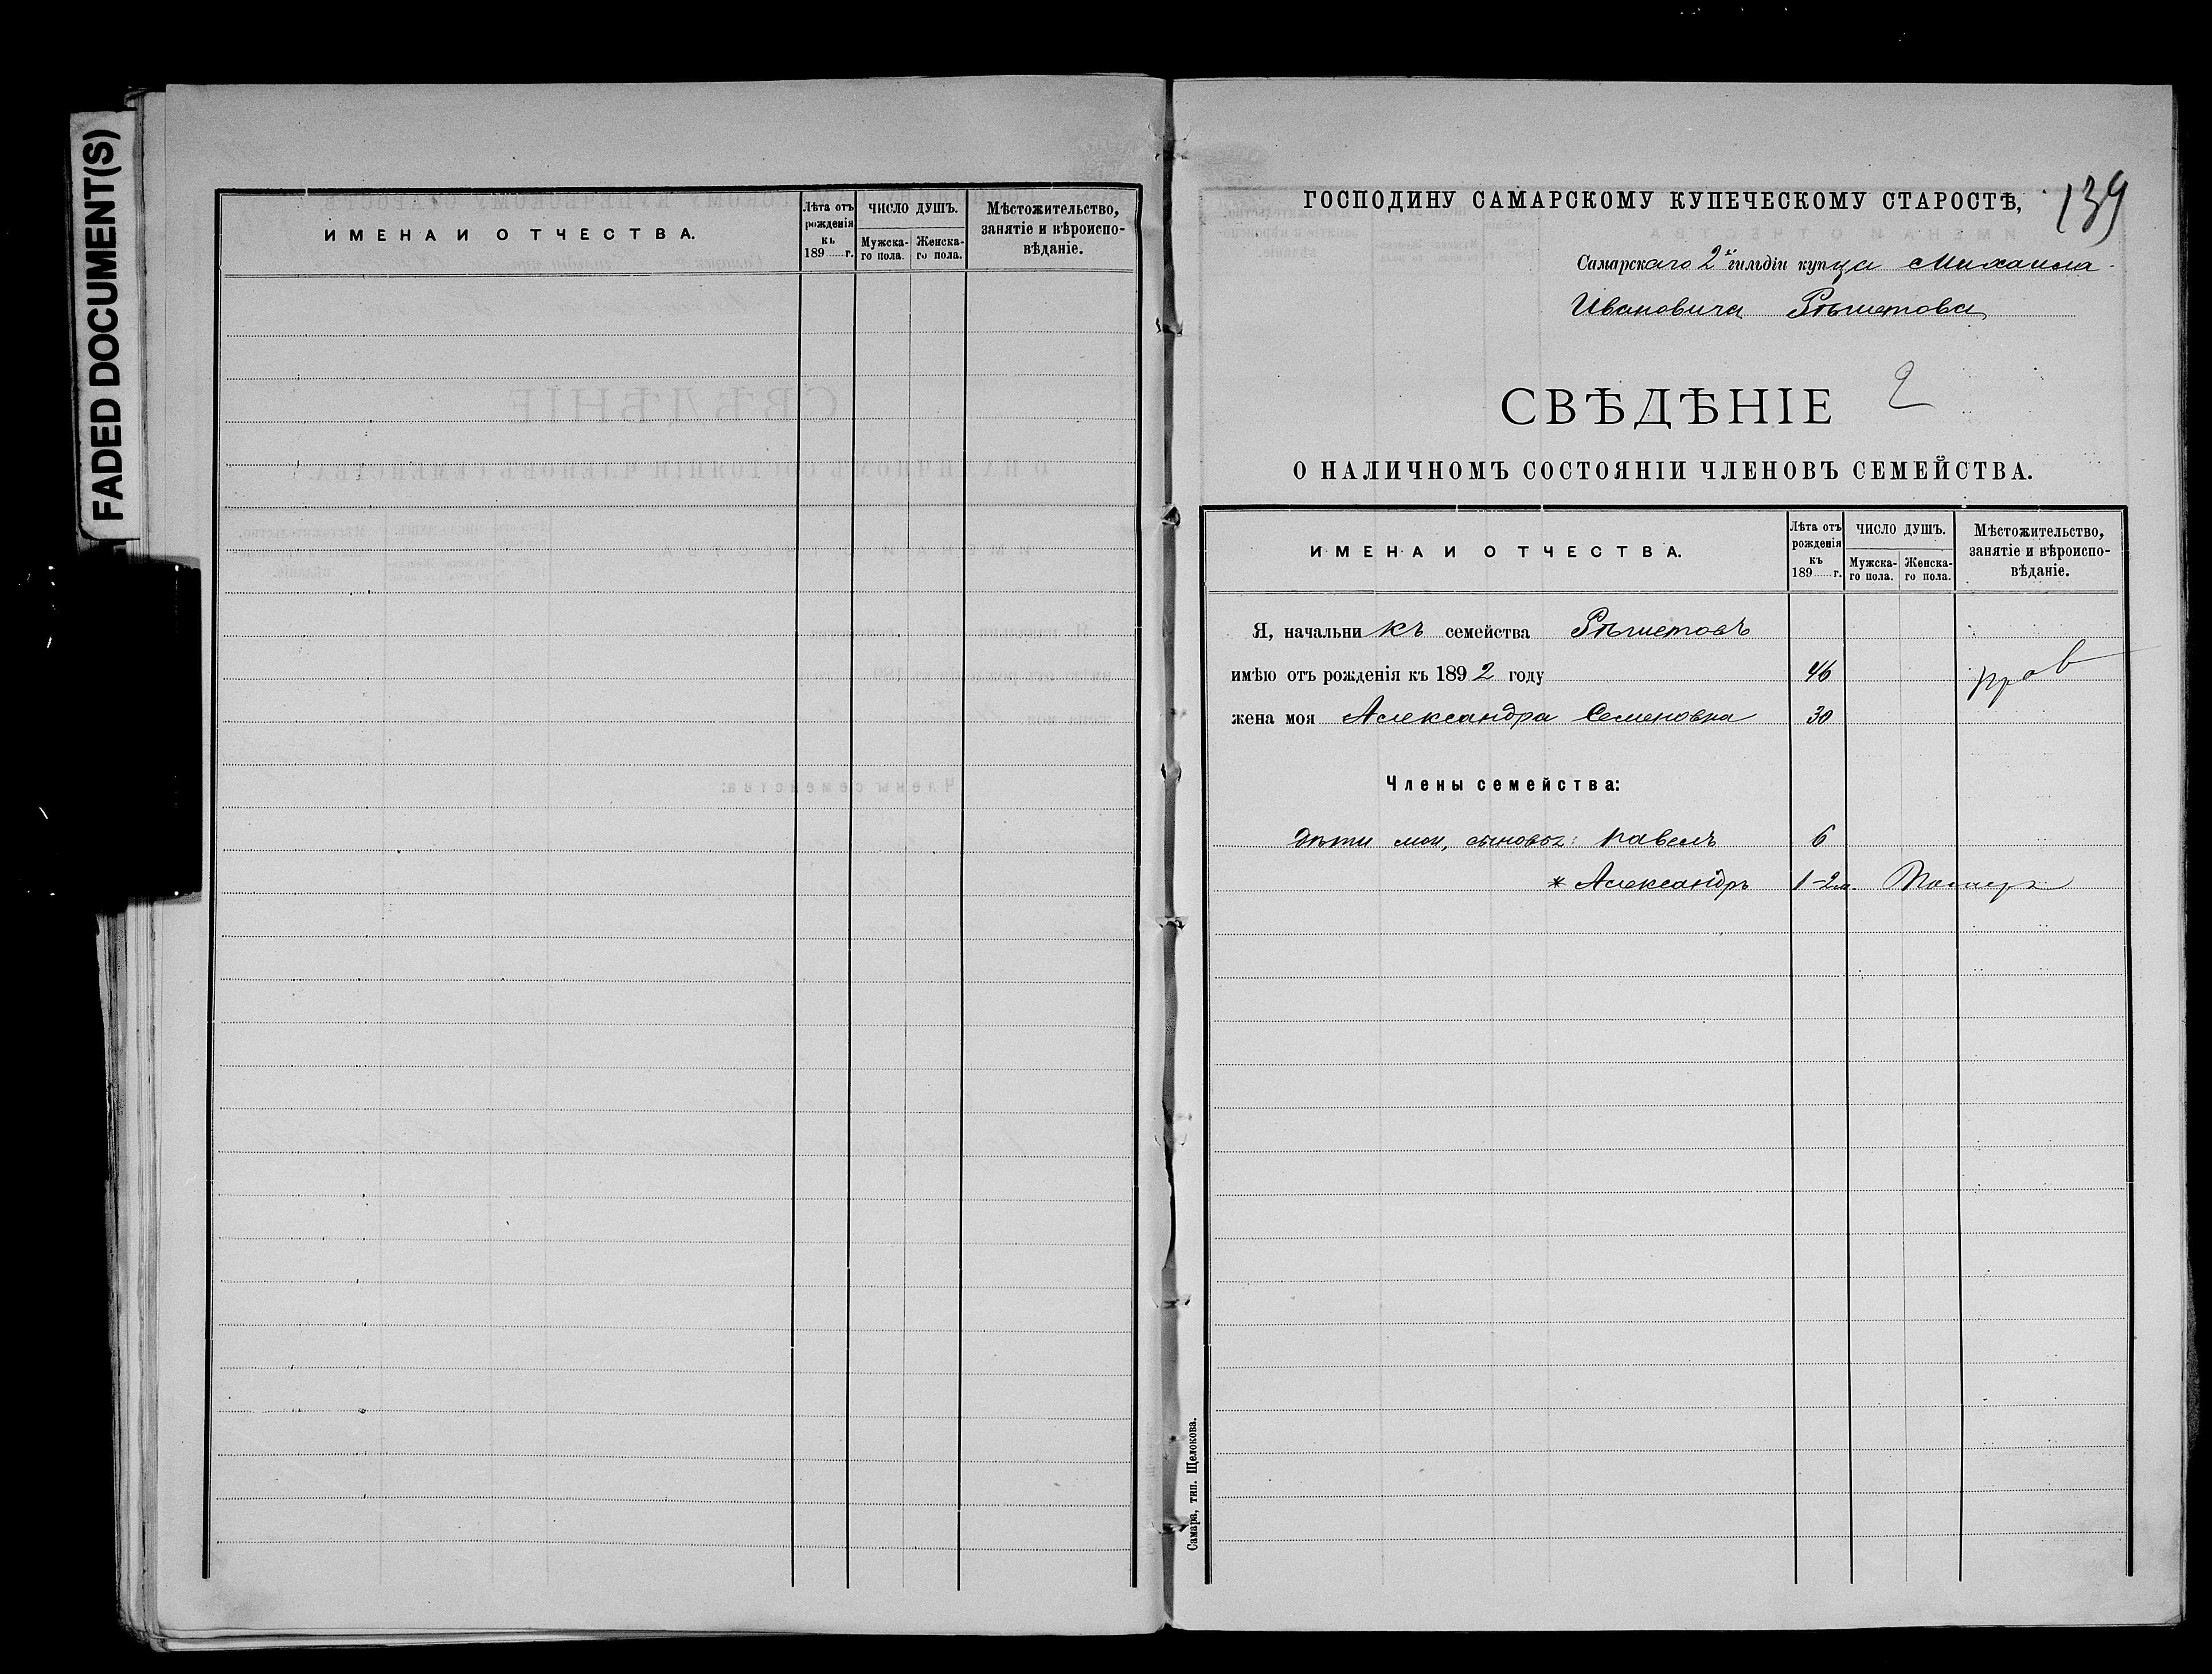 FADED DOCUMENT(S)
ИМЕНА И ОТЧЕСТВА.
Лѣта отъ рожденія къ 189 г.
ЧИСЛО ДУШЪ.
Мужска-го пола.
Женска-го пола.
Мѣстожительство, занятіе и вѣроиспо-вѣданіе.
ГОСПОДИНУ САМАРСКОМУ КУПЕЧЕСКОМУ СТАРОСТѢ,
139
Самарскаго 2й гильдіи купца Михаила
Ивановича Рѣшетова
СВѢДѢНІЕ 2
О НАЛИЧНОМЪ СОСТОЯНІИ ЧЛЕНОВЪ СЕМЕЙСТВА.
ИМЕНА И ОТЧЕСТВА.
Лѣта отъ рожденія къ 189 г.
ЧИСЛО ДУШЪ.
Мужска-го пола.
Женска-го пола.
Мѣстожительство, занятіе и вѣроиспо-вѣданіе.
Я, начальникъ семейства Рѣшетовъ
имѣю отъ рожденія къ 1892 году 46 прав
жена моя Александра Семеновна 30
Члены семейства:
Дѣти мои, сыновья: Павелъ 6
* Александръ 1-2м. Померъ
Самара, тип. Щелокова.